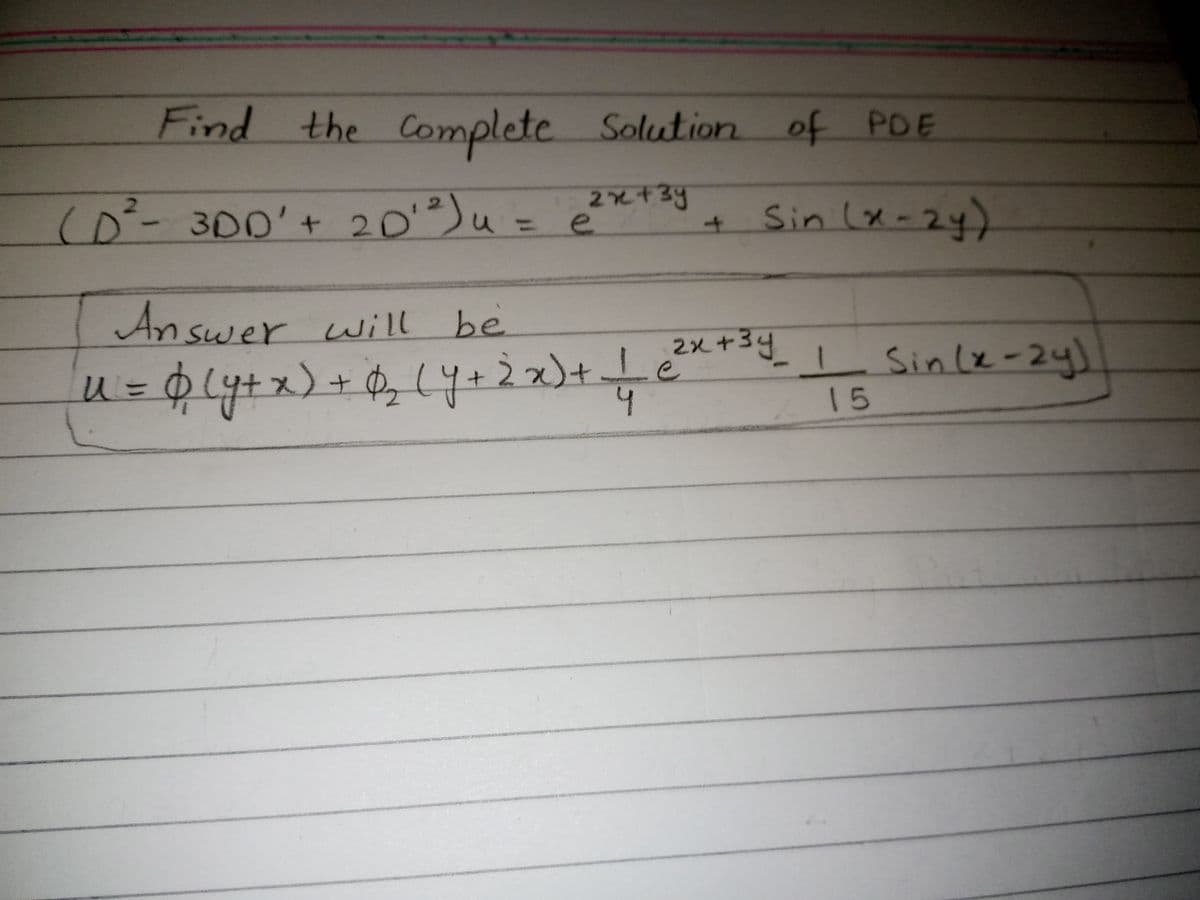 Find the Complete Solution of PDE
(D² - 3DD' + 2D'²)u = e^(2x+3y) + Sin(x-2y)
Answer will be
u = ϕ₁(y+x) + ϕ₂(y+2x) + 1/4 e^(2x+3y) - 1/15 Sin(x-2y)